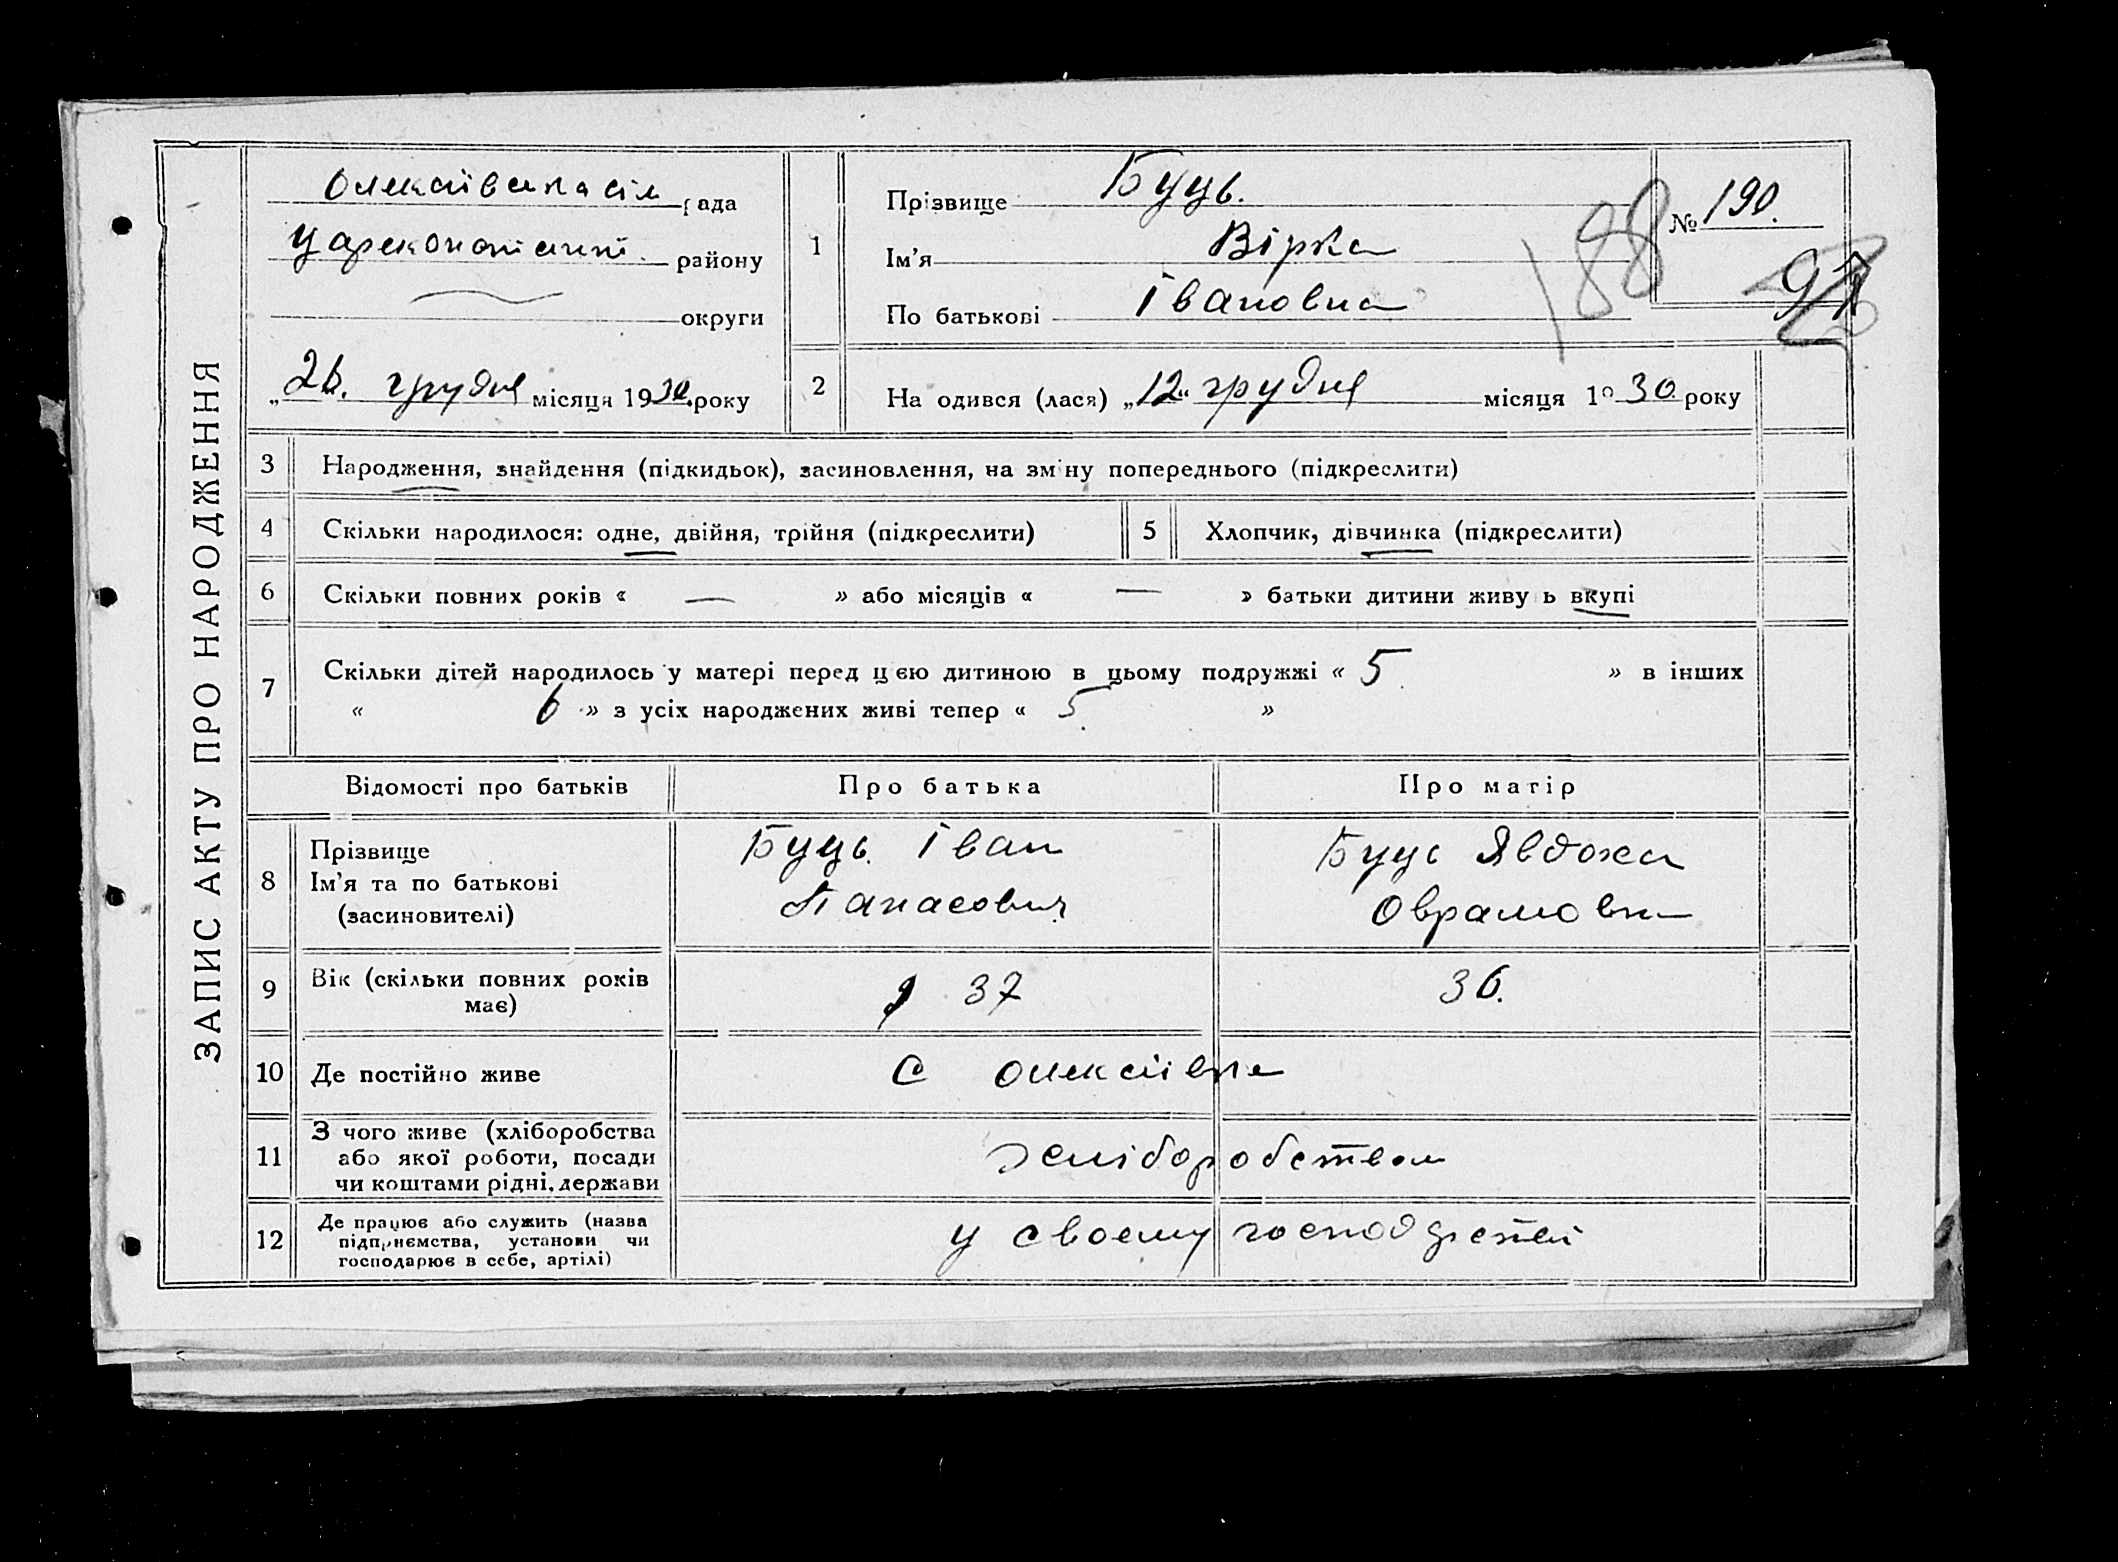 ЗАПИС АКТУ ПРО НАРОДЖЕННЯ
Олексіївська сіл рада
району
округи
„26. грудня місяця 1930 року
1
Прізвище Буць.
Ім'я Вірка
По батькові Івановна
№ 190.
188
97
2
На одився (лася) „12" грудня місяця 1930 року
3 Народження, знайдення (підкидьок), засиновлення, на зміну попереднього (підкреслити)
4 Скільки народилося: одне, двійня, трійня (підкреслити) 5 Хлопчик, дівчинка (підкреслити)
6 Скільки повних років « — » або місяців « — » батьки дитини живу ь вкупі
7 Скільки дітей народилось у матері перед цією дитиною в цьому подружжі « 5 » в інших
« 6 » з усіх народжених живі тепер « 5 »
Відомості про батьків Про батька Про матір
8 Прізвище
Ім'я та по батькові
(засиновителі)
Буць Іван
Панасович
Буць Явдоха
Оврамовн
9 Вік (скільки повних років
має)
37
36.
10 Де постійно живе
с Олексіївка
11 З чого живе (хліборобства
або якої роботи, посади
чи коштами рідні, держави
хліборобством
12 Де працює або служить (назва
підприємства, установи чи
господарює в себе, артілі)
у своему господрстві